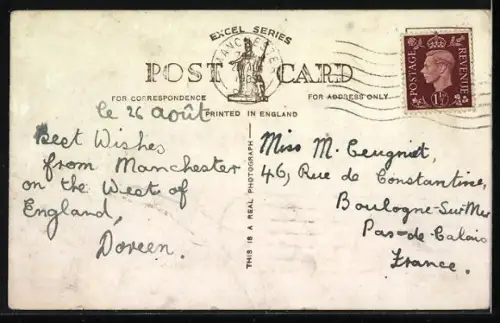 EXCEL SERIES
MANCHESTER
POST CARD
FOR CORRESPONDENCE
FOR ADDRESS ONLY
PRINTED IN ENGLAND
POSTAGE REVENUE
1½D
THIS IS A REAL PHOTOGRAPH
le 26 août
Best Wishes
from Manchester
on the West of
England,
Doreen.
Miss M. Ceugniet,
46, Rue de Constantine,
Boulogne-Sur-Mer
Pas-de-Calais
France.